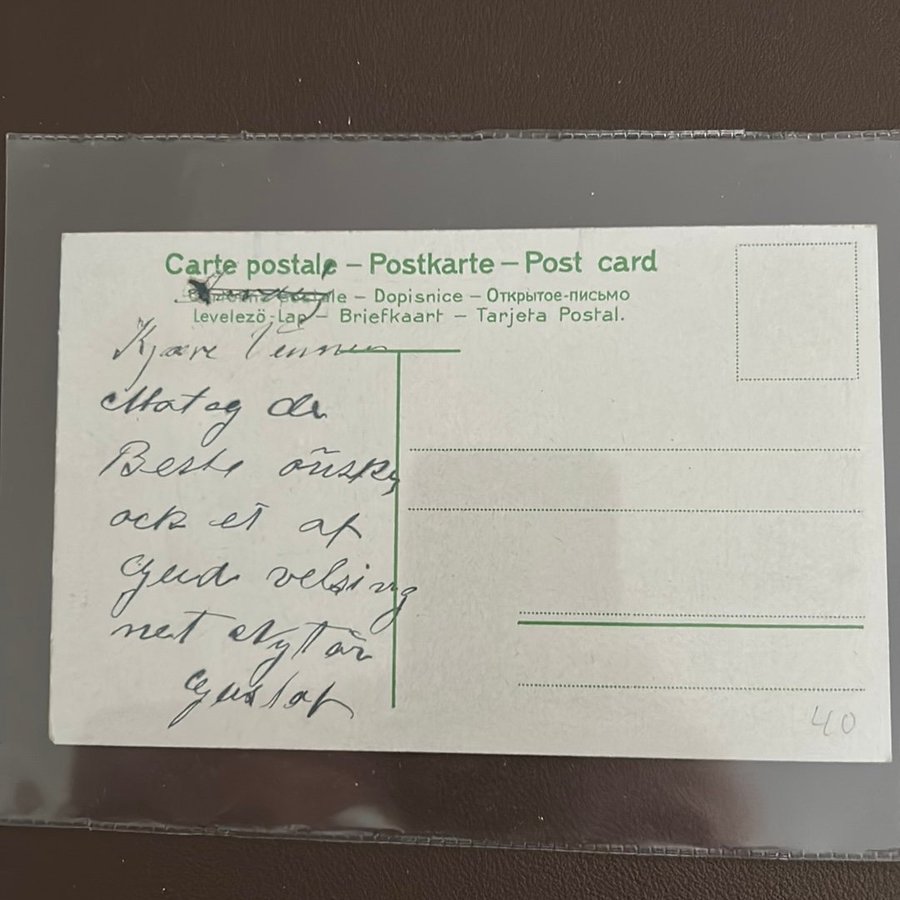 Carte postale – Postkarte – Post card
– Dopisnice – Открытое-письмо
Levelező-Lap – Briefkaart – Tarjeta Postal.
Kjære Venner
Motag de
Beste önsky
ock et af
Gud velsing
net Nyt år
Gustaf
40